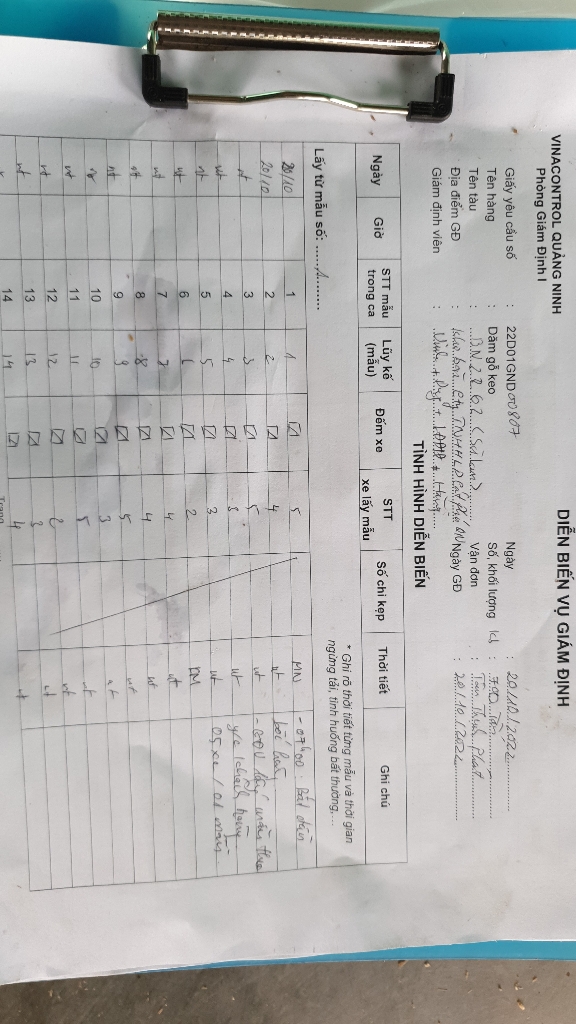 VINACONTROL QUẢNG NINH
Phòng Giám Định I
DIỄN BIẾN VỤ GIÁM ĐỊNH
Giấy yêu cầu số : 22D01GND00807 Ngày : 20/10/2022
Tên hàng : Dăm gỗ keo Số, khối lượng :
Tên tàu : BN 2262 Vận đơn :
Địa điểm GĐ : Ngày GĐ : 20/10/2022
Giám định viên :
TÌNH HÌNH DIỄN BIẾN
Ngày Giờ STT mẫu trong ca Lũy kế (mẫu) Đếm xe STT xe lấy mẫu Số chì kẹp Thời tiết Ghi chú
* Ghi rõ thời tiết từng mẫu và thời gian
ngừng tải, tình huống bất thường,...
Lấy từ mẫu số: 1
20/10 1 1 ☑ 5 MN - 07h00: Bắt đầu
20/10 2 2 ☑ 4 nt
nt 3 3 ☑ 5 nt
nt 4 4 ☑ 3 nt
nt 5 5 ☑ 3 nt 05 xe / 01 mẫu
nt 6 6 ☑ 2
nt 7 7 ☑ 4 nt
nt 8 8 ☑ 4 nt
nt 9 9 ☑ 5 nt
nt 10 10 ☑ 3 nt
nt 11 11 ☑ 5 nt
nt 12 12 ☑ 2 nt
nt 13 13 ☑ 3 nt
nt 14 14 ☑ 4 nt
Trang